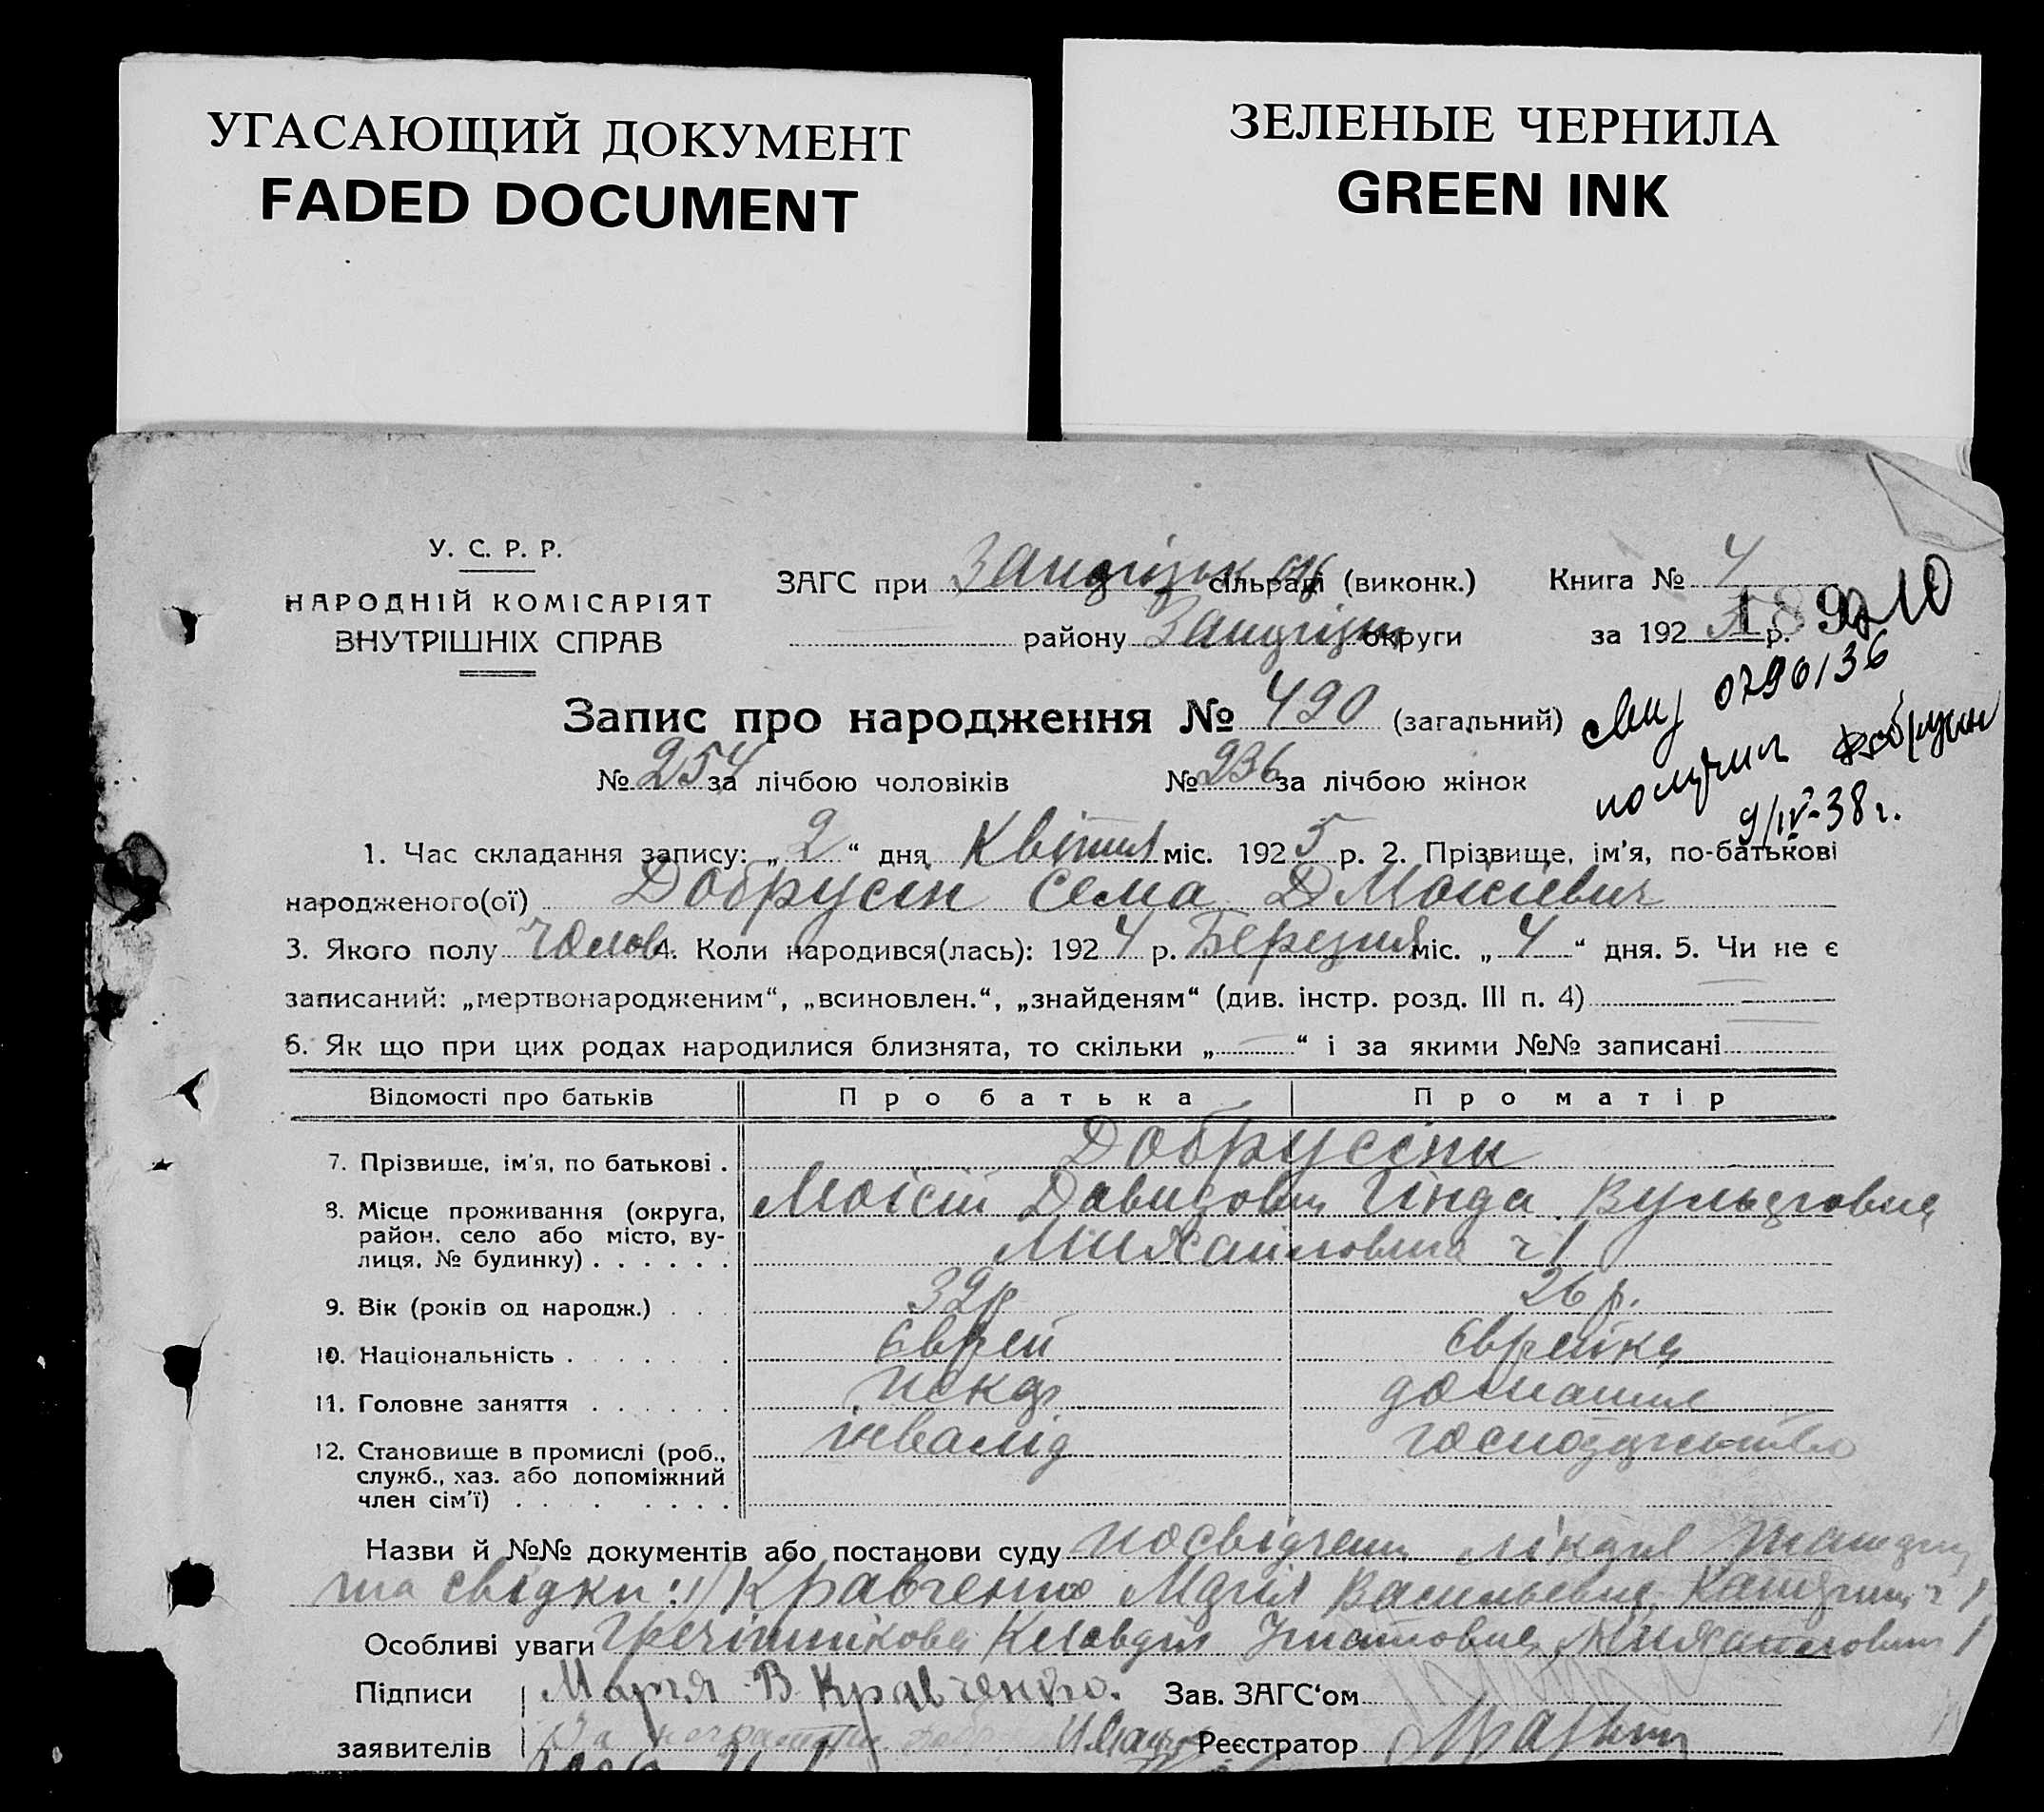 УГАСАЮЩИЙ ДОКУМЕНТ
FADED DOCUMENT
ЗЕЛЕНЫЕ ЧЕРНИЛА
GREEN INK
У. С. Р. Р.
НАРОДНІЙ КОМІСАРІЯТ
ВНУТРІШНІХ СПРАВ
ЗАГС при сільраді (виконк.)
району округи
Книга № 4
за 192 5 р.
189 210
Запис про народження № 490 (загальний)
№ 254 за лічбою чоловіків № 236 за лічбою жінок
0790136
получил Добрусин
9/IV-38 г.
1. Час складання запису: „ 2 “ дня Квітня міс. 192 5 р. 2. Прізвище, ім’я, по-батькові
народженого(ої) Добрусін Сема Мойсієвич
3. Якого полу чолов 4. Коли народився(лась): 192 4 р. Березня міс. „ 4 “ дня. 5. Чи не є
записаний: „мертвонародженим“, „всиновлен.“, „знайденям“ (див. інстр. розд. III п. 4)
6. Як що при цих родах народилися близнята, то скільки „ “ і за якими №№ записані
Відомості про батьків Про батька Про матір
7. Прізвище, ім’я, по батькові . Добрусіни
8. Місце проживання (округа, Моісей Давидович Гінда Вульфовна
район, село або місто, ву-
лиця, № будинку) . . . . . . Михайловська ч 1
9. Вік (років од народж.) . . . 32 р 26 р.
10. Національність . . . . . . . Єврей Єврейка
11. Головне заняття . . . . . . пекар домашнє
12. Становище в промислі (роб., інвалід господарство
служб., хаз. або допоміжний
член сім’ї) . . . . . . . .
Назви й №№ документів або постанови суду посвідчення лікаря
та свідки: 1) Кравченко Марія Васильевна
Особливі уваги Гречішнікова Клавдія Игнатовна Михайловськ 1
Підписи Марія В Кравченко. Зав. ЗАГС‘ом
заявителів Реєстратор